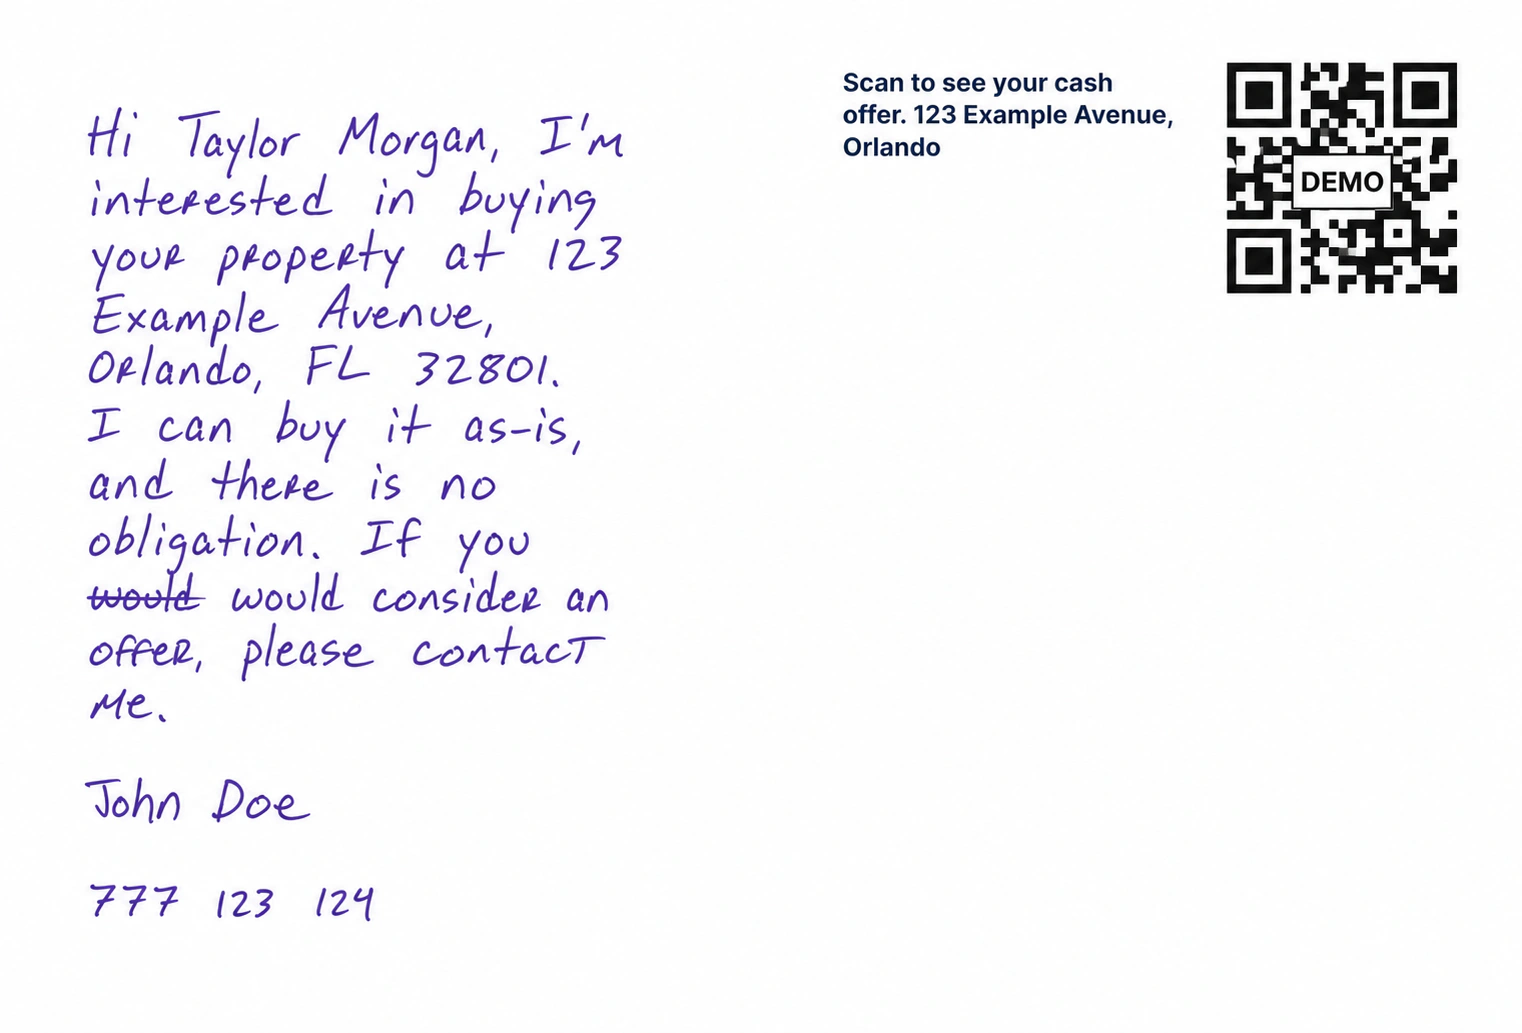 Hi Taylor Morgan, I'm
interested in buying
your property at 123
Example Avenue,
Orlando, FL 32801.
I can buy it as-is,
and there is no
obligation. If you
would would consider an
offer, please contact
me.
John Doe
777 123 124
Scan to see your cash
offer. 123 Example Avenue,
Orlando
DEMO